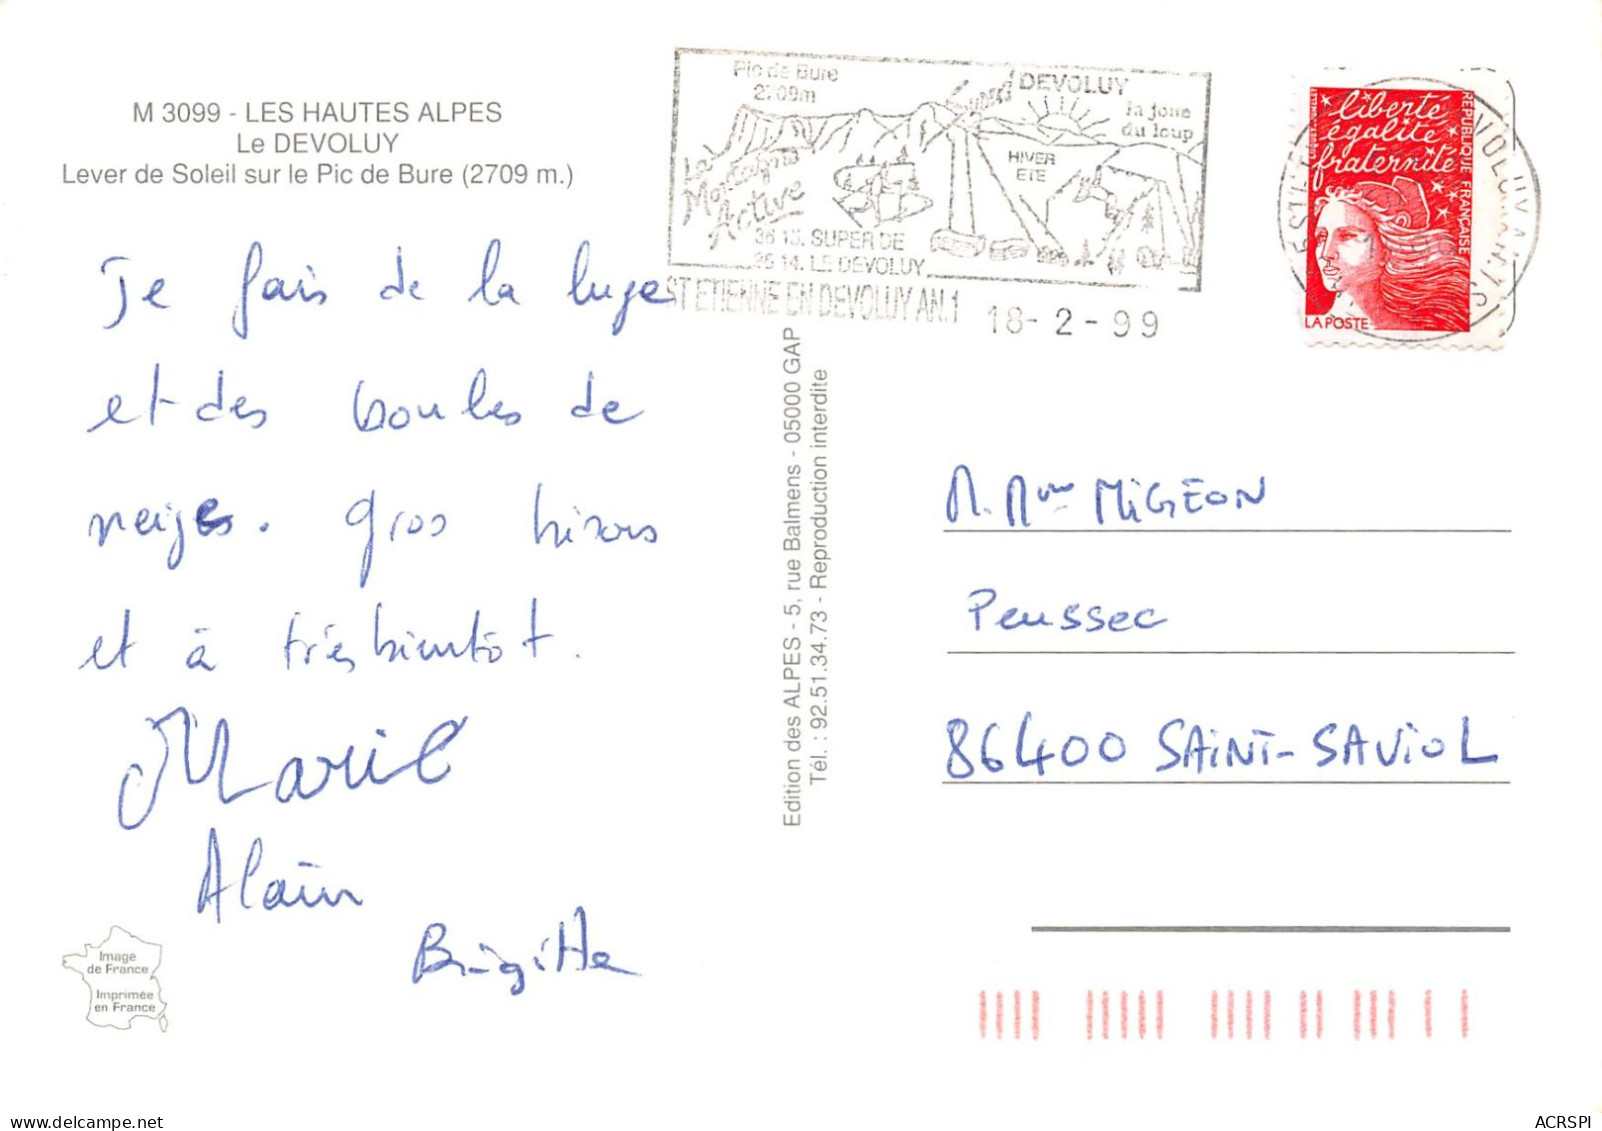 M 3099 - LES HAUTES ALPES
Le DEVOLUY
Lever de Soleil sur le Pic de Bure (2709 m.)
Je fais de la luge
et des boules de
neiges. gros bisous
et à très bientôt.
Marie
Alain
Brigitte
Image
de France
Imprimée
en France
Edition des ALPES - 5, rue Balmens - 05000 GAP
Tél. : 92.51.34.73 - Reproduction interdite
Pic de Bure
2709m
DEVOLUY
la joue
du loup
HIVER
ETE
La
Montagne
Active
36 15. SUPER DE
36 14. LE DEVOLUY
ST ETIENNE EN DEVOLUY AN.1
18-2-99
liberté
égalité
fraternité
REPUBLIQUE FRANÇAISE
LA POSTE
M. Mme MiGEON
Peussec
86400 SAiNT-SAViOL
delcampe.net
ACRSPI